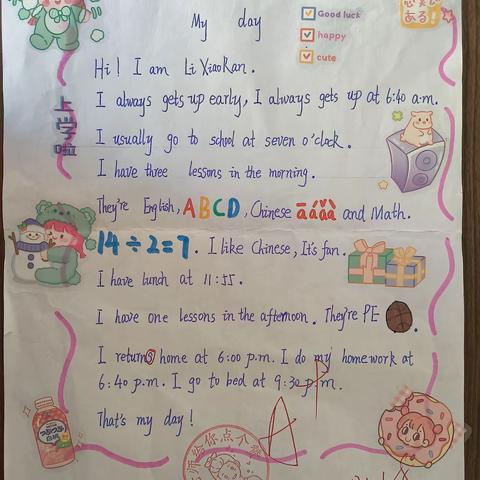 My day
Good luck
happy
cute
Hi! I am Li XiaoRan.
I always gets up early, I always gets up at 6:40 a.m.
上学啦
I usually go to school at seven o'clock.
I have three lessons in the morning.
They're English, ABCD, Chinese āáǎà and Math.
14÷2=7. I like Chinese, It's fun.
I have lunch at 11:55.
I have one lessons in the afternoon. They're PE
I returns home at 6:00 p.m. I do my homework at
6:40 p.m. I go to bed at 9:30 p.m.
That's my day!
A
老师给你点个赞